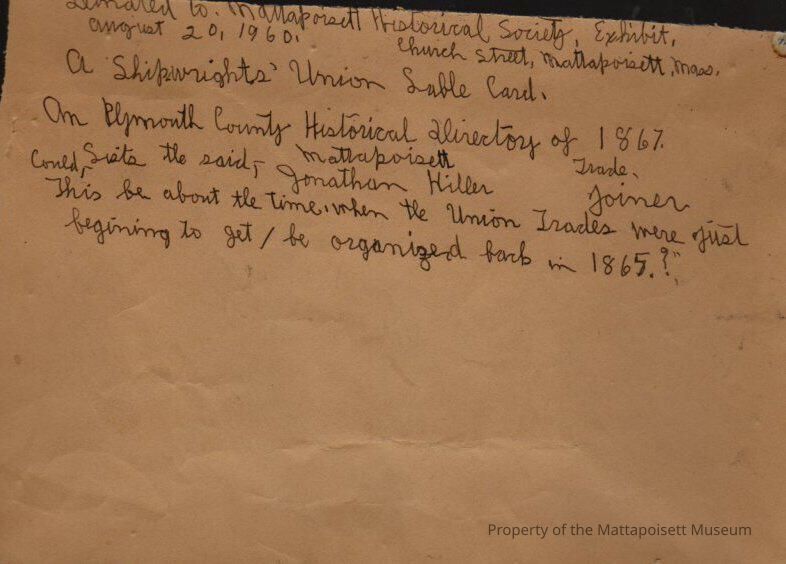 Donated to. Mattapoisett Historical Society, Exhibit,
august 20, 1960.
Church Street, Mattapoisett, Mass.
A Shipwrights' Union Sable Card.
An Plymouth County Historical Directory of 1867.
Sists the said, Mattapoisett Trade.
Could, Jonathan Hiller Joiner
This be about the time, when the Union Trades were just
begining to get / be organized back in 1865.?"
Property of the Mattapoisett Museum